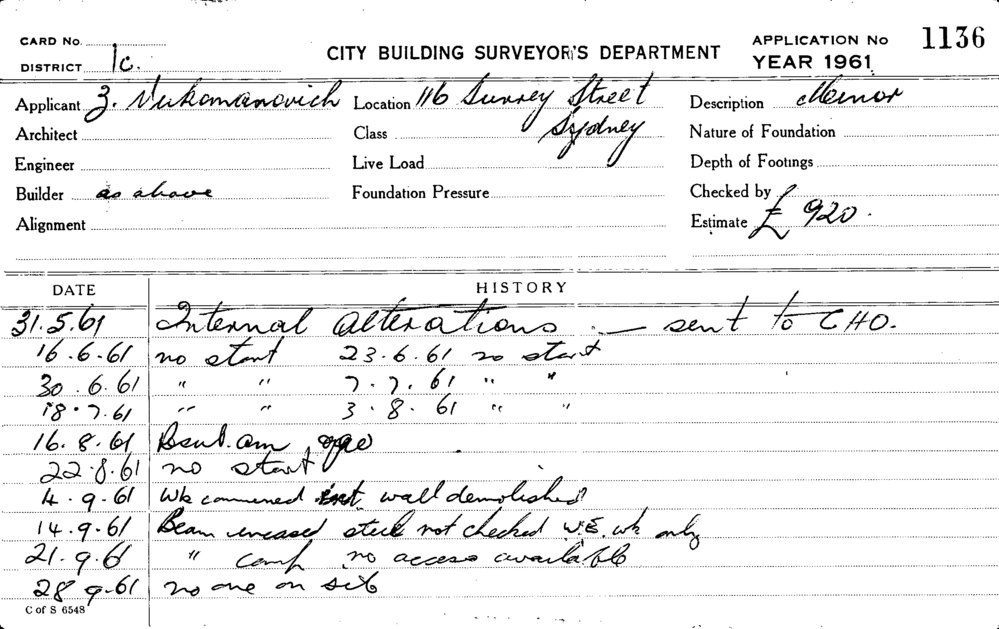 CARD No.
DISTRICT 1c.
CITY BUILDING SURVEYOR'S DEPARTMENT
APPLICATION No 1136
YEAR 1961
Applicant Z. Vukomanovich Location 116 Surrey Street Description Minor
Architect Class Sydney Nature of Foundation
Engineer Live Load Depth of Footings
Builder as above Foundation Pressure Checked by
Alignment Estimate £ 920.
DATE HISTORY
31.5.61 Internal alterations — sent to CHO.
16.6.61 no start 23.6.61 no start
30.6.61 " " 7.7.61 " "
18.7.61 " " 3.8.61 " "
16.8.61
22.8.61 no start
4.9.61 Wk commenced wall demolished
14.9.61 Beam steel not checked wk only
21.9.61 " comp no access available
28 9.61 no one on site
C of S 6548